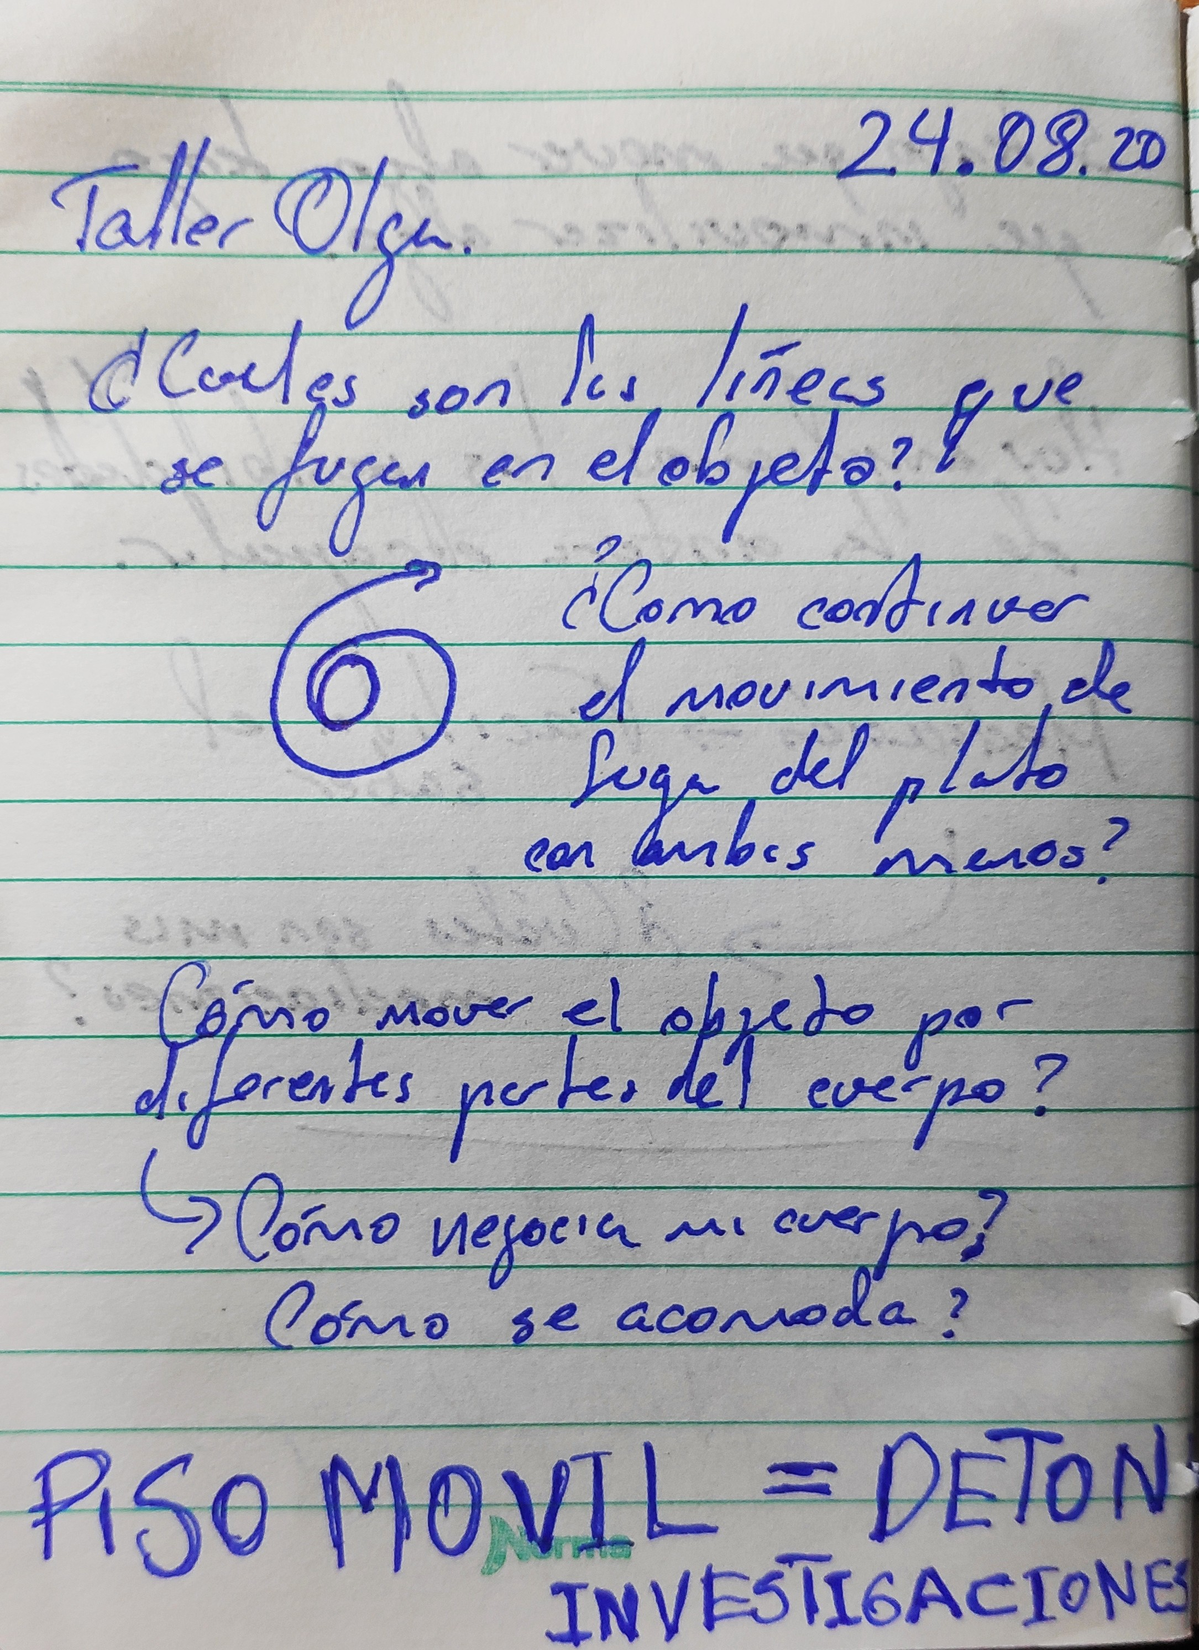 24.08.20
Taller Olga.
¿Cuales son las líneas que
se fugan en el objeto?
¿Como continuar
el movimiento de
fuga del plato
con ambas manos?
Cómo mover el objeto por
diferentes partes del cuerpo?
Cómo negocia mi cuerpo?
Cómo se acomoda?
PISO MOVIL = DETON
Norma
INVESTIGACIONES